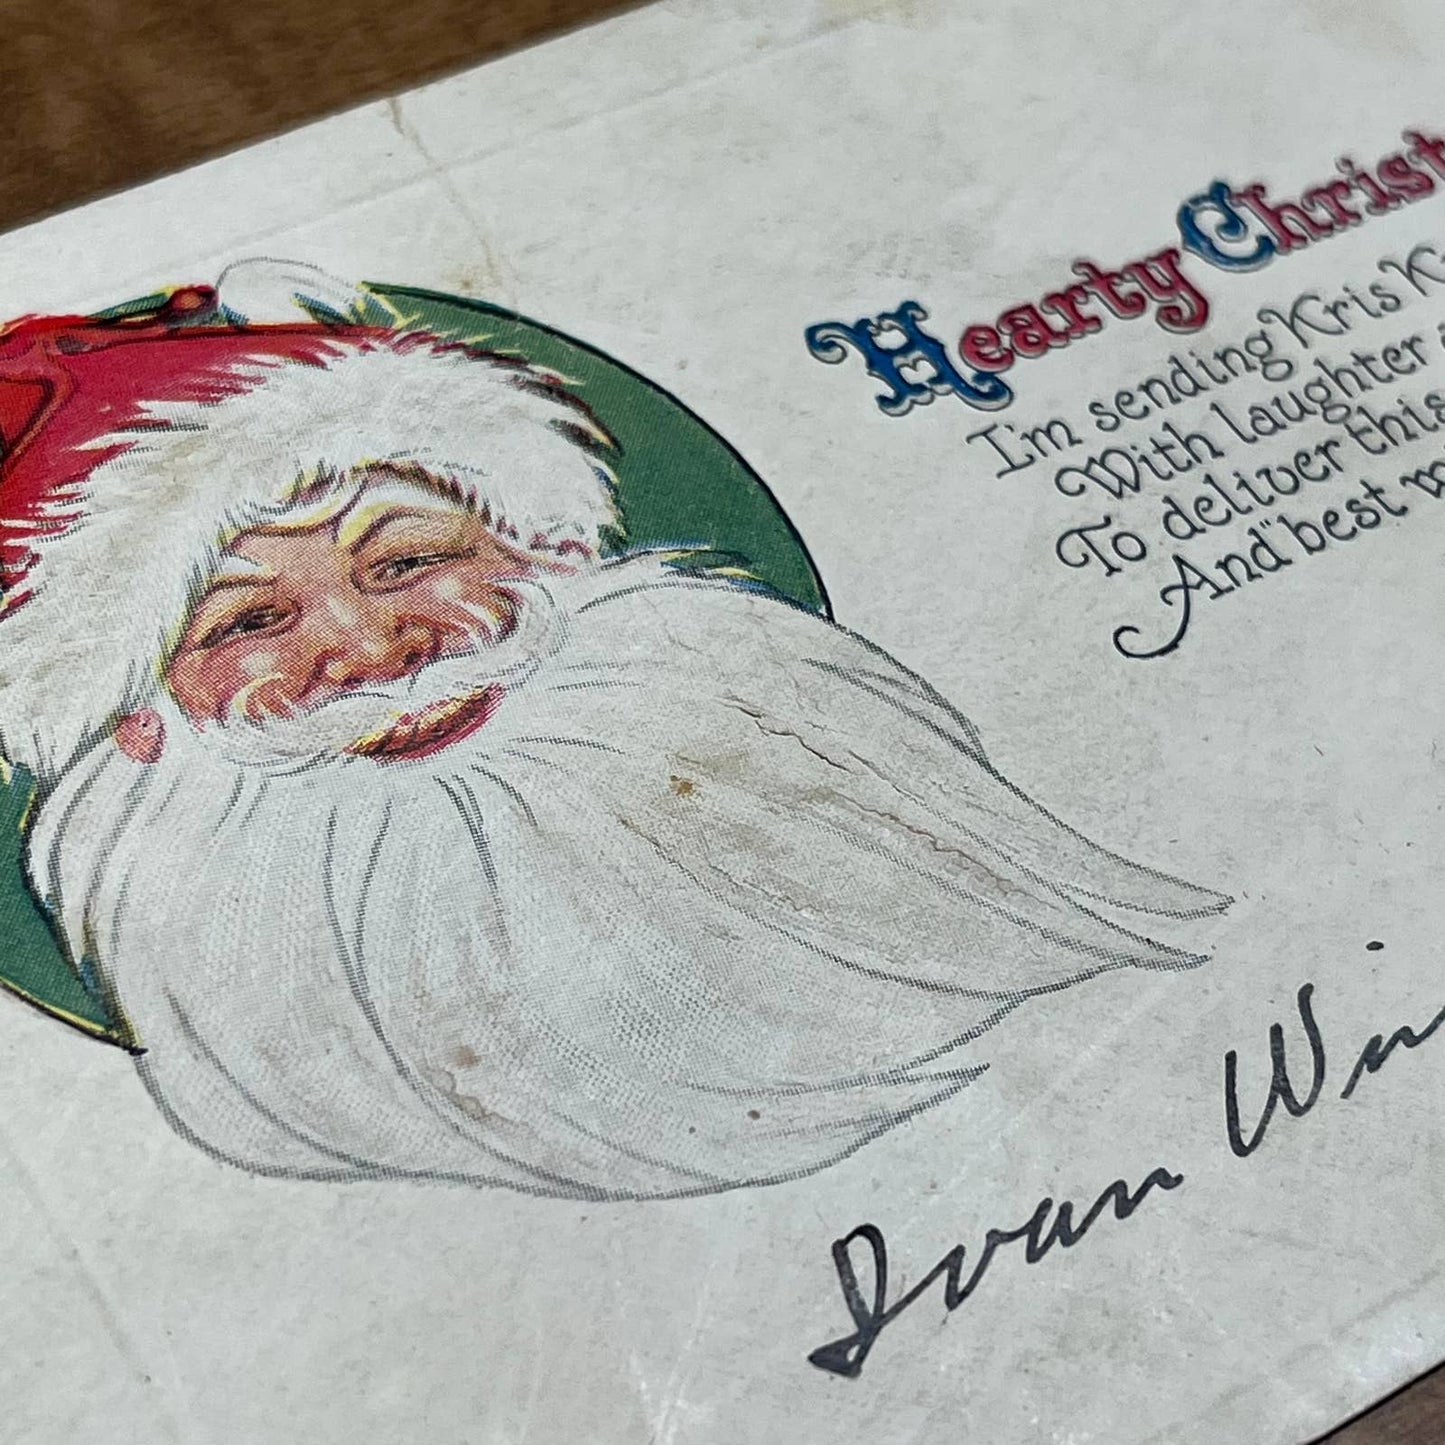 Hearty Christ
I'm sending Kris K
With laughter a
To deliver this
And "best w
Ivan Win